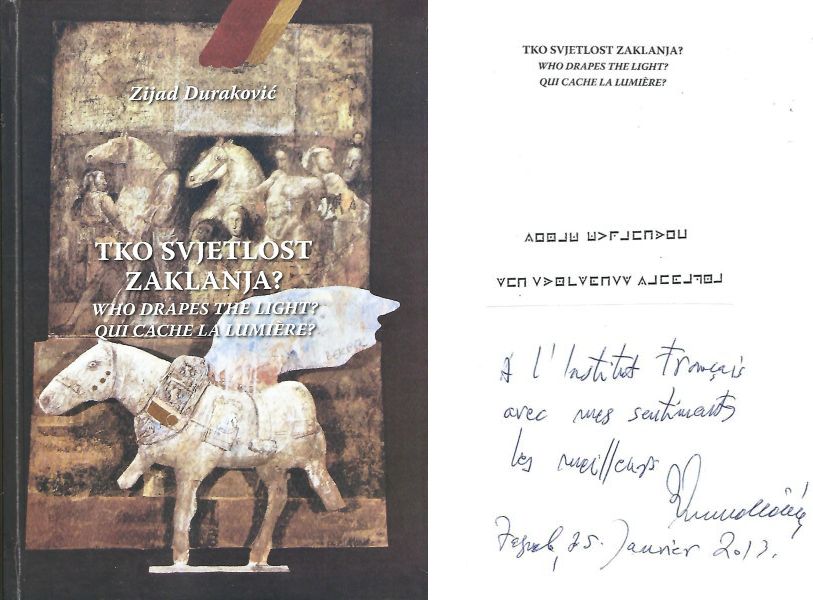 Zijad Duraković
TKO SVJETLOST
ZAKLANJA?
WHO DRAPES THE LIGHT?
QUI CACHE LA LUMIÈRE?
TKO SVJETLOST ZAKLANJA?
WHO DRAPES THE LIGHT?
QUI CACHE LA LUMIÈRE?
A l'Institut Français
avec mes sentiments
les meilleurs
Zagreb, 25. Janvier 2013.